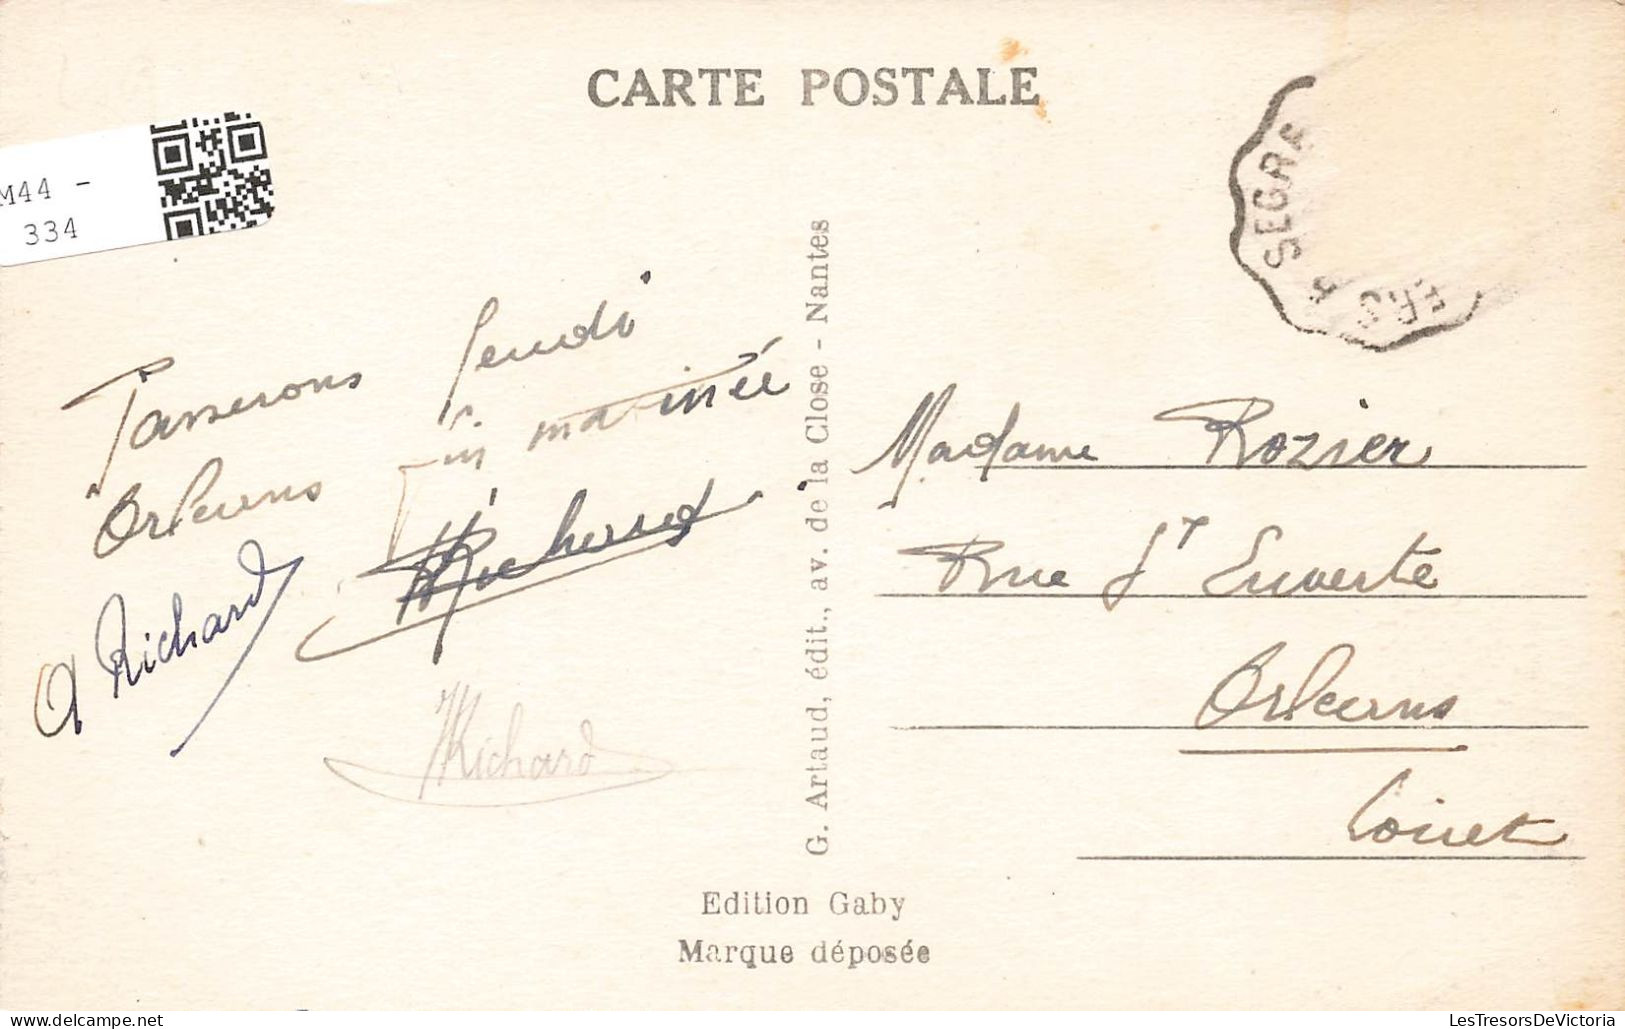 CARTE POSTALE
M44 -
334
SEGRE
Passerons Jeudi
Orleans fin matinée
Richard
A Richard
Richard
G. Artaud, édit., av. de la Close - Nantes
Madame Rozier
Rue St Euverte
Orleans
Loiret
Edition Gaby
Marque déposée
LesTresorsDeVictoria